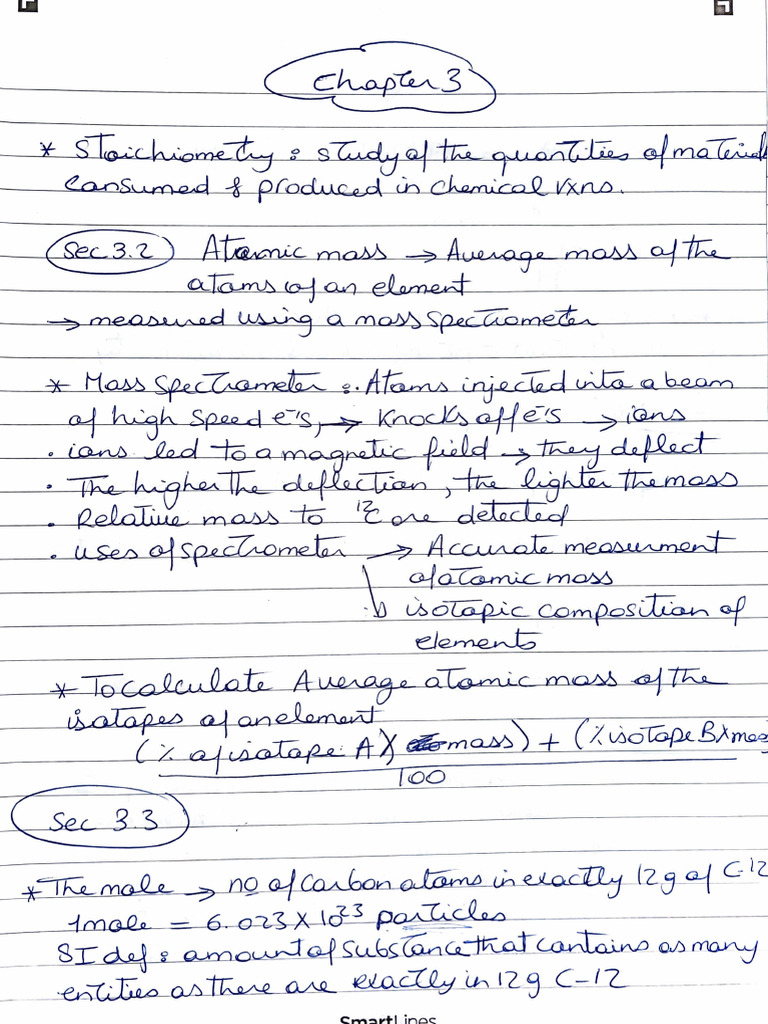 Chapter 3
* Stoichiometry : study of the quantities of material
consumed & produced in chemical rxns.
Sec 3.2 Atomic mass → Average mass of the
atoms of an element
→ measured using a mass spectrometer
* Mass Spectrometer : . Atoms injected into a beam
of high speed e's, → Knocks off e's → ions
. ions led to a magnetic field → they deflect
. The higher the deflection, the lighter the mass
. Relative mass to ¹²C are detected
. uses of spectrometer → Accurate measurment
of atomic mass
↳ isotopic composition of
elements
* To calculate Average atomic mass of the
isotapes of an element
(% of isotape A)( mass) + (% isotope B)(mas
100
Sec 3.3
* The mole → no of Carbon atoms in exactly 12g of C-12
1 mole = 6.023 X 10²³ particles
SI def : amount of substance that contains as many
entities as there are exactly in 12g C-12
SmartLines